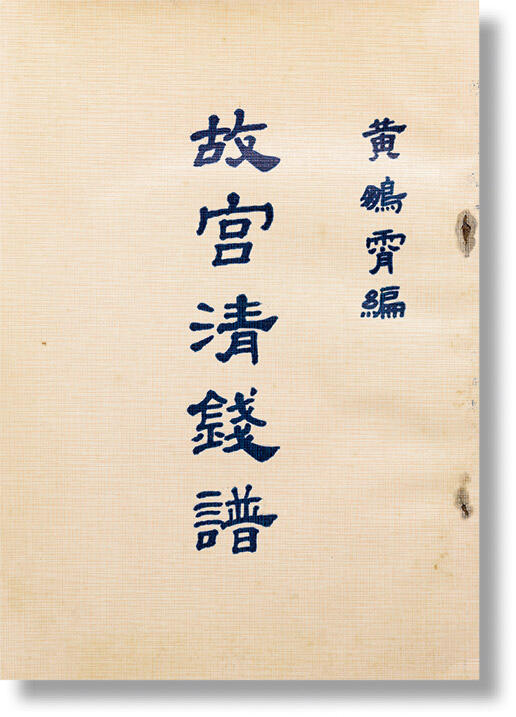 黃鵬霄編
故宮清錢譜